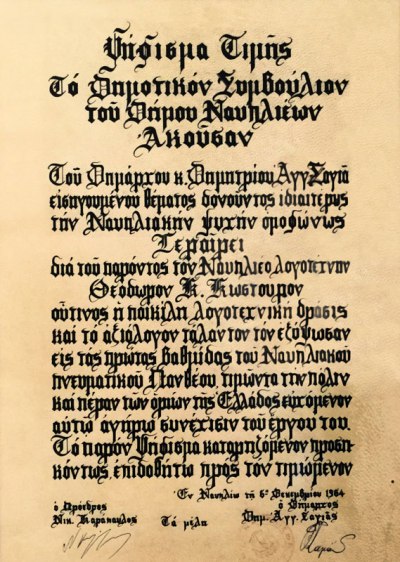 Ψήφισμα Τιμῆς
Τό Δημοτικόν Συμβούλιον
τοῦ Δήμου Ναυπλιέων
Ἀκοῦσαν
Τοῦ Δημάρχου κ. Δημητρίου Ἀγγ Σαγιᾶ
εἰσηγουμένου θέματος δονοῦντος ἰδιαιτέρως
τήν Ναυπλιακήν ψυχήν ὁμοφώνως
Γεραίρει
διά τοῦ παρόντος τόν Ναυπλιέα λογοτέχνην
Θεόδωρον Κ. Κωστούρον
οὕτινος ἡ ποικίλη λογοτεχνική δρᾶσις
καί τό ἀξιόλογον τάλαντον τόν ἐξύψωσαν
εἰς τάς πρώτας βαθμίδας τοῦ Ναυπλιακοῦ
πνευματικοῦ Πανθέου, τιμῶντα τήν πόλιν
καί πέραν τῶν ὁρίων τῆς Ἑλλάδος εὐχόμενον
αὐτῷ ἀγήρω συνέχισιν τοῦ ἔργου του.
Τό παρόν Ψήφισμα καταρτιζόμενον προση-
κόντως ἐπιδοθήτω πρός τόν τιμώμενον
Ἐν Ναυπλίῳ τῇ 6ῃ Δεκεμβρίου 1964
ὁ Πρόεδρος ὁ Δήμαρχος
Νικ. Καράπαυλος Τά μέλη Δημ. Ἀγγ. Σαγιᾶς